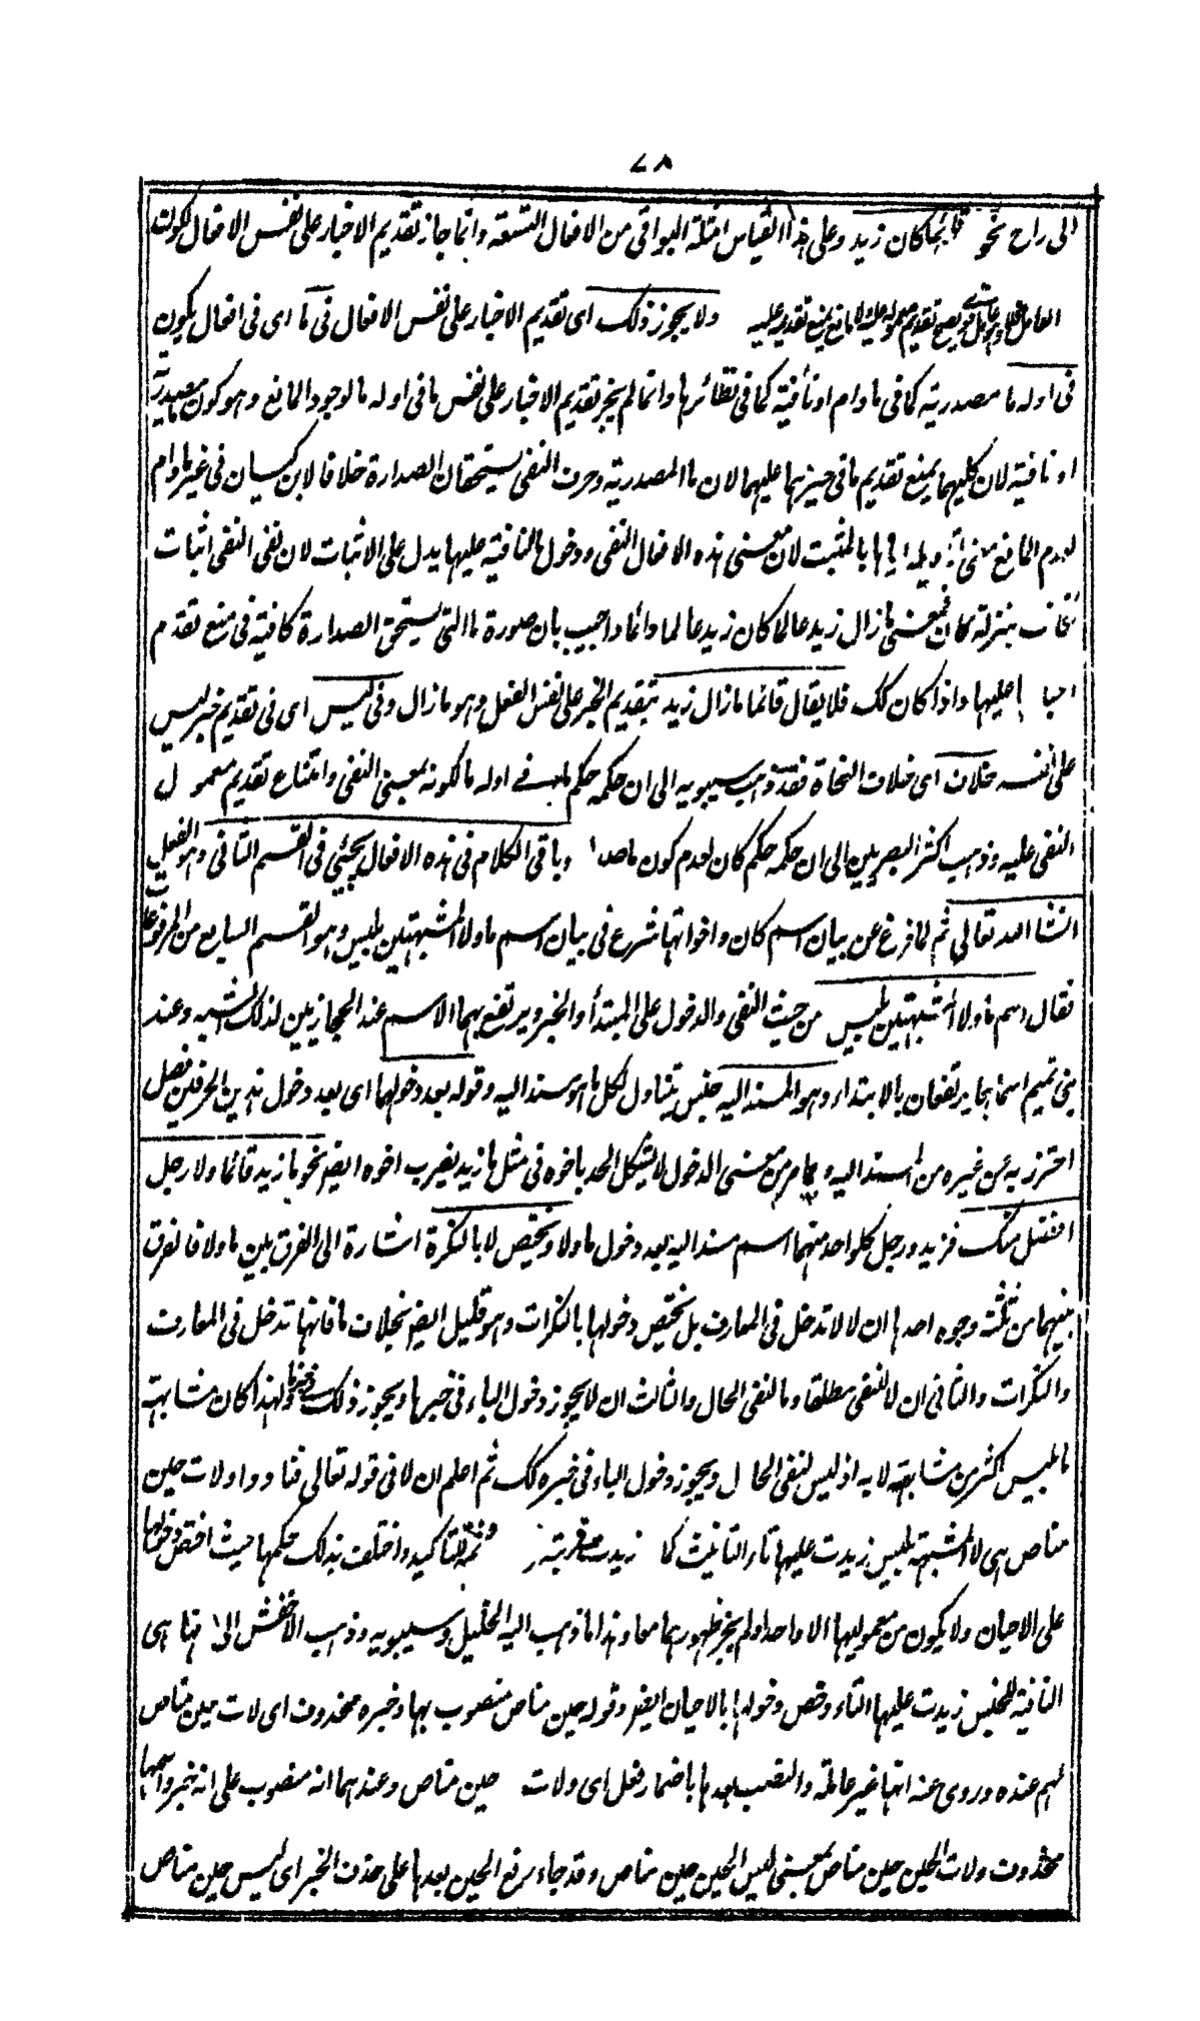 ٧٨
الى راح نحو قائما كان زيد وعلى هذا القياس امثلة البواقى من الافعال التسعة وانما جاز تقديم الاخبار على نفس الافعال لكون
العامل فعلا يصح تقديم معموله عليه لا مانع يمنع تقديمه عليه ولا يجوز ذلك اى تقديم الاخبار على نفس الافعال فى ما اى فى افعال يكون
فى اوله ما مصدرية كما فى ما دام او نافية كما فى نظائرها وانما لم يجز تقديم الاخبار على نفس ما فى اوله ما لوجود المانع وهو كون ما مصدرية
او نافية لان كليهما يمنع تقديم ما فى حيزهما عليهما لان ما المصدرية وحرف النفى يستحقان الصدارة خلافا لابن كيسان فى غير ما دام
لعدم المانع معنى بالمثبت لان معنى هذه الافعال النفى ودخول النافية عليها يدل على الاثبات لان نفى النفى اثبات
فكانت بمنزلة كان فمعنى ما زال زيد عالما كان زيد عالما دائما واجيب بان صورة ما التى يستحق الصدارة كافية فى منع تقدم
عليها واذا كان كك فلا يقال قائما ما زال زيد بتقديم الخبر على نفس الفعل وهو ما زال وفى ليس اى فى تقديم خبر ليس
على نفسه خلاف اى خلاف النحاة فقد ذهب سيبويه الى ان حكمه حكم ما فى اوله ما لكونه بمعنى النفى وامتناع تقديم معمول
النفى عليه وذهب اكثر البصريين الى ان حكمه حكم كان لعدم كون ما وباقى الكلام فى هذه الافعال يجئ فى القسم الثانى وهو الفعل
انشاء الله تعالى ثم لما فرغ عن بيان اسم كان واخواتها شرع فى بيان اسم ما ولا المشبهتين بليس وهو القسم السابع من المرفوعات
فقال اسم ما ولا المشبهتين بليس من حيث النفى والدخول على المبتدأ والخبر ويرتفع بهما الاسم عند الحجازيين لذلك الشبه وعند
بنى تميم اسماهما يرتفعان بالابتداء وهو المسند اليه جنس يتناول لكل ما هو مسند اليه وقوله بعد دخولهما اى بعد دخول هذين الحرفين فصل
احترز به عن غيره من المسند اليه وبما مر من معنى الدخول لا يشكل الحد باخوه فى مثل ما زيد يضرب اخوه ايضا نحو ما زيد قائما ولا رجل
افضل منك فزيد ورجل كلواحد منهما اسم مسند اليه بعد دخول ما ولا ويختص لا بالنكرة اشارة الى الفرق بين ما ولا فالفرق
بينهما من ثلثة وجوه احدها ان لا لا تدخل فى المعارف بل يختص دخولها بالنكرات وهو قليل ايضا بخلاف ما فانها تدخل فى المعارف
والنكرات والثانى ان لا لنفى مطلقا وما لنفى الحال والثالث ان لا يجوز دخول الباء فى خبرها ويجوز ذلك فى خبر ما ولهذا كان مشابهة
ما بليس اكثر من مشابهة لا به اذ ليس لنفى الحال ويجوز دخول الباء فى خبره كك ثم اعلم ان لا فى قوله تعالى فنادوا ولات حين
مناص هى لا المشبهة بليس زيدت عليها تاء التانيث كما زيدت فى ربت وثمت للتاكيد واختلف بذلك حكمها حيث اختص دخولها
على الاحيان ولا يكون من معموليها الا واحدا ولم يجز ظهورهما معا وهذا ما ذهب اليه الخليل وسيبويه وذهب الاخفش الى انها هى
النافية للجنس زيدت عليها التاء وخص دخولها بالاحيان ايضا وقوله حين مناص منصوب بها وخبره محذوف اى لات حين مناص
لهم عنده وروى عنه انها غير عاملة والنصب بعدها باضمار فعل اى ولات حين مناص وعندهما انه منصوب على انه خبر واسمها
محذوف ولات الحين حين مناص بمعنى ليس الحين حين مناص وقد جاء رفع الحين بعدها على حذف الخبر اى ليس حين مناص